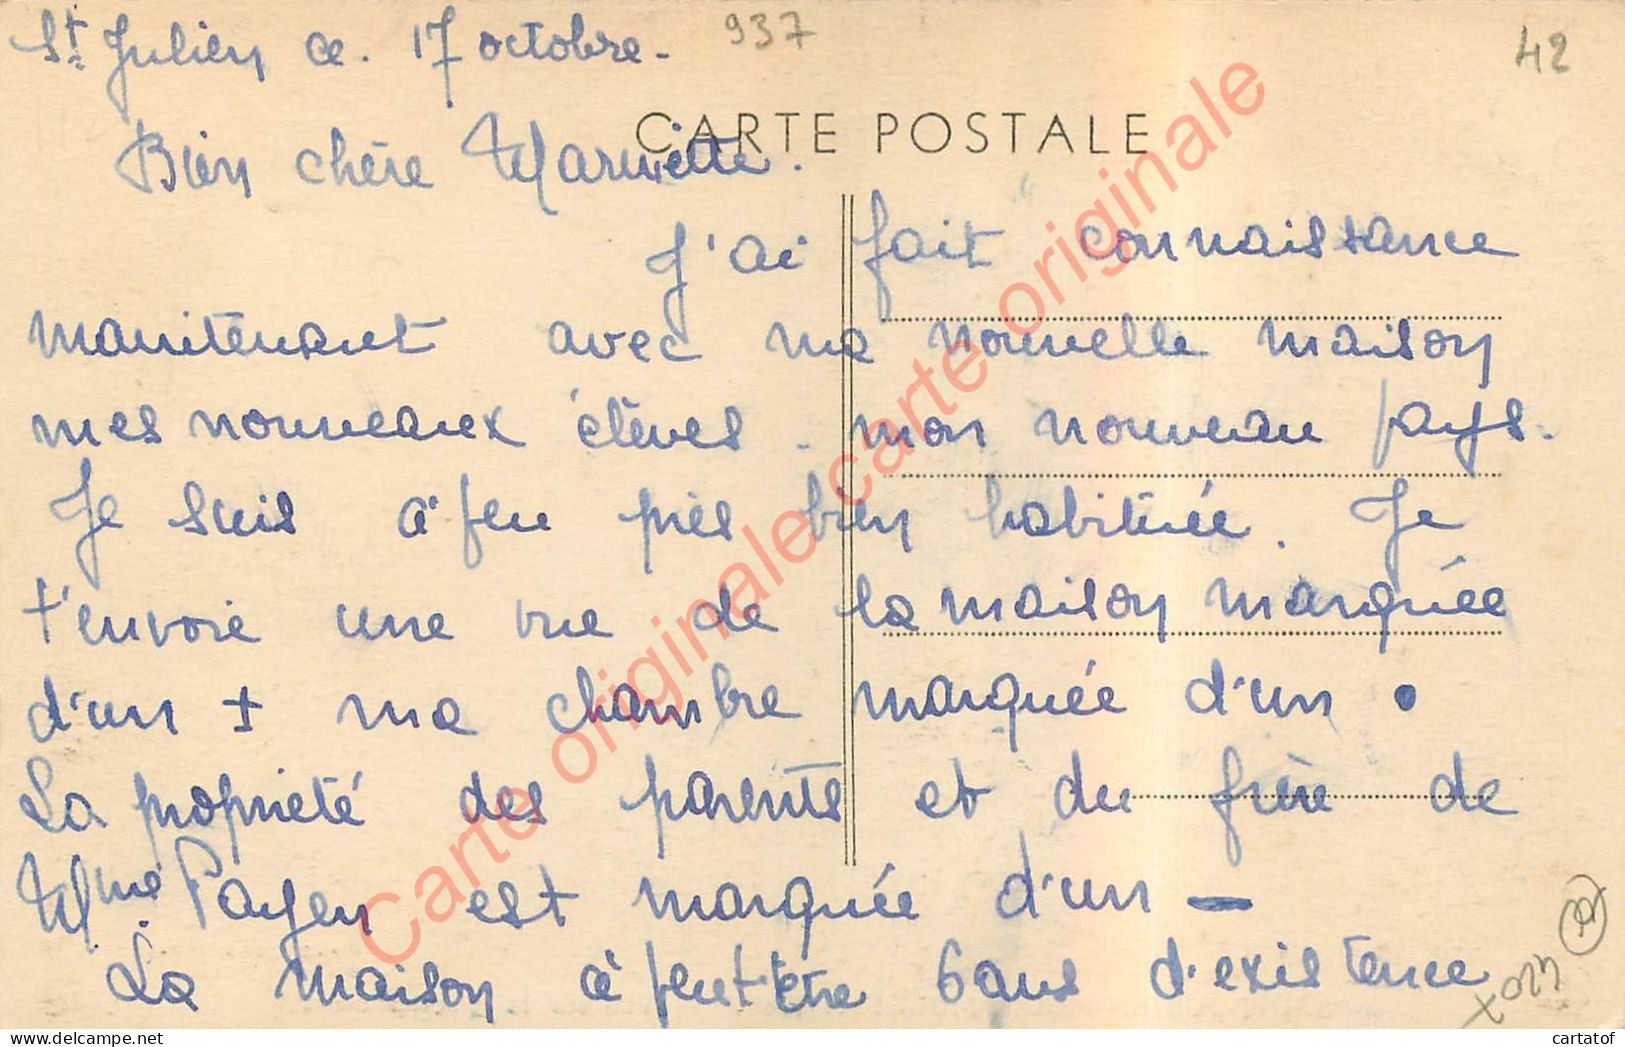 St Julien ce. 17 octobre. 937 42
CARTE POSTALE
Bien chère Mariette.
J'ai fait connaissance
maintenant avec ma nouvelle maison
mes nouveaux élèves. mon nouveau pays.
Je suis à peu près bien habituée. Je
t'envoie une vue de la maison marquée
d'un + ma chambre marquée d'un •
La propriété des parents et du frère de
Mme Payen est marquée d'un —
La maison a peut'être 6 ans d'existence
Carte originale carte originale
cartatof